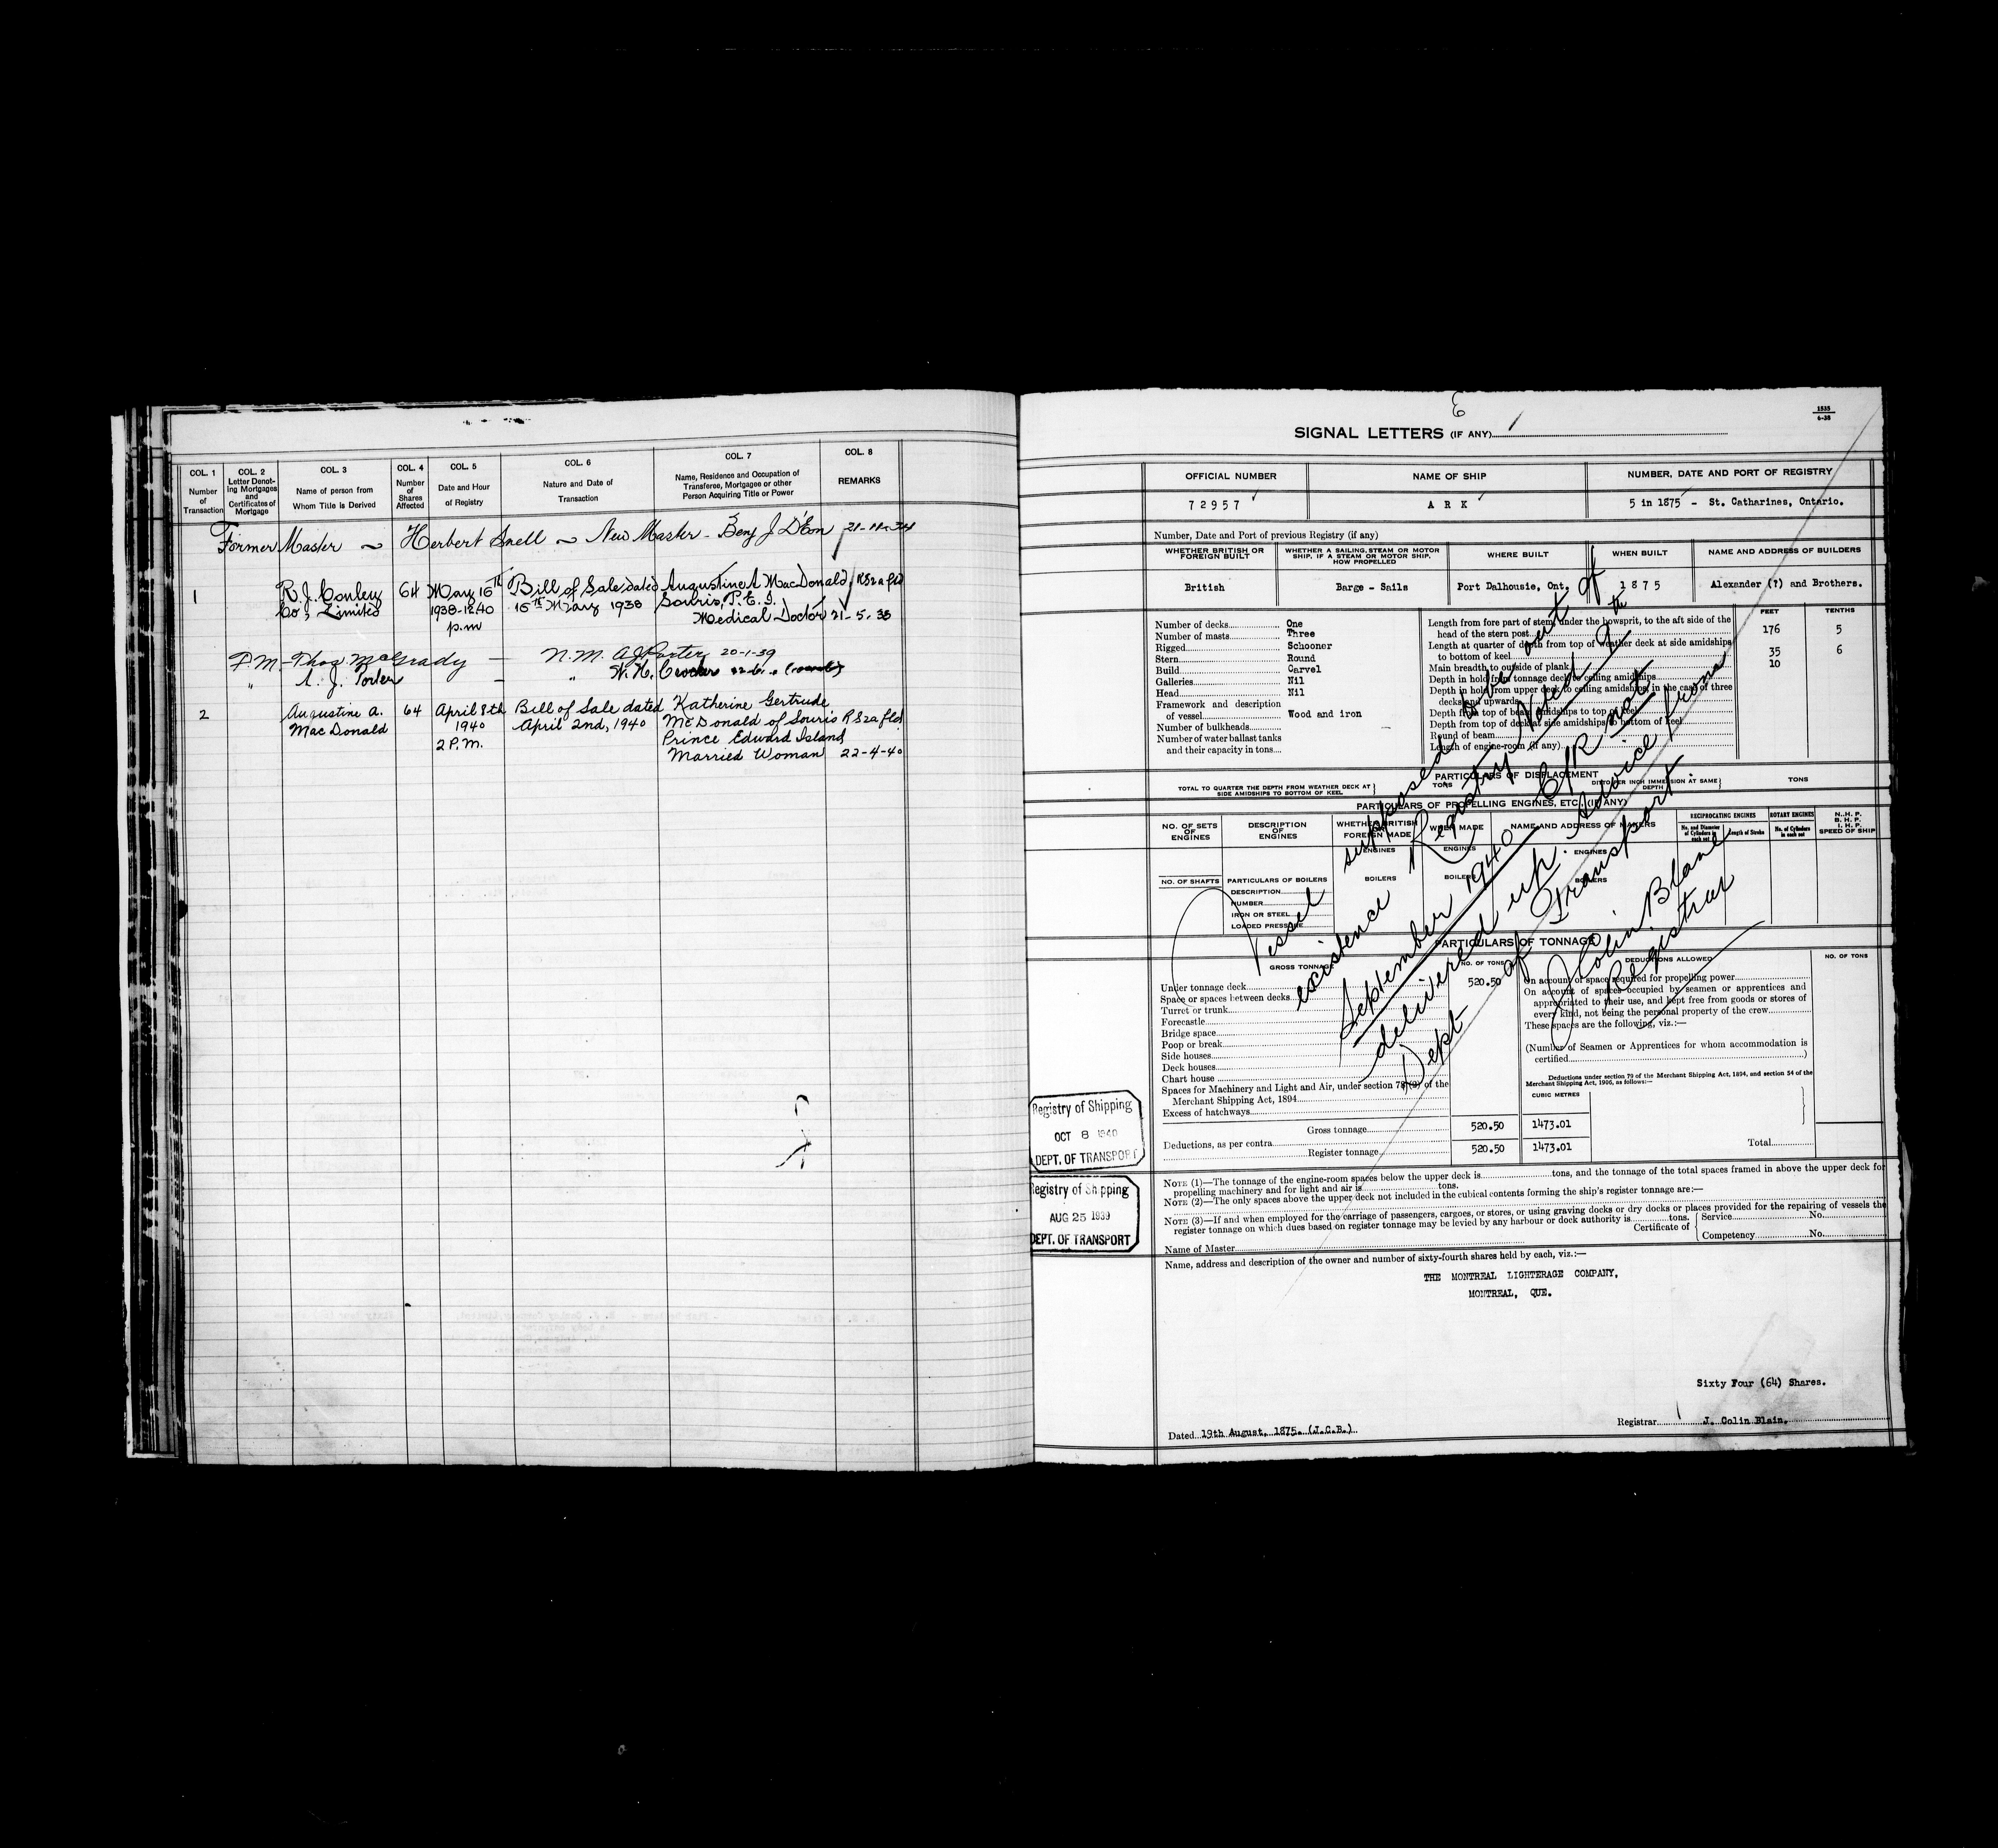 COL. 1 Number of Transaction
COL. 2 Letter Denoting Mortgages and Certificates of Mortgage
COL. 3 Name of person from Whom Title is Derived
COL. 4 Number of Shares Affected
COL. 5 Date and Hour of Registry
COL. 6 Nature and Date of Transaction
COL. 7 Name, Residence and Occupation of Transferee, Mortgagee or other Person Acquiring Title or Power
COL. 8 REMARKS
Former Master ~ Herbert Snell ~ New Master - Benj J D'Eon
1 R. J. Conley 64 May 16th Bill of Sale dated Augustine A MacDonald
Co, Limited 1938-12.40 16th May 1938 Souris, P.E.I.
p.m Medical Doctor 21-5-38
F.M - Thos. McGrady — N.M. A J Porter 20-1-39
" A. J. Porter — "
2 Augustine A. 64 April 8th Bill of Sale dated Katherine Gertrude
MacDonald 1940 April 2nd, 1940 McDonald of Souris
2 P.M. Prince Edward Island
Married Woman 22-4-40
6
1535
6-38
SIGNAL LETTERS (IF ANY)
OFFICIAL NUMBER NAME OF SHIP NUMBER, DATE AND PORT OF REGISTRY
72957 ARK 5 in 1875 - St. Catharines, Ontario.
Number, Date and Port of previous Registry (if any)
WHETHER BRITISH OR FOREIGN BUILT
WHETHER A SAILING, STEAM OR MOTOR SHIP, IF A STEAM OR MOTOR SHIP, HOW PROPELLED
WHERE BUILT WHEN BUILT NAME AND ADDRESS OF BUILDERS
British Barge - Sails Port Dalhousie, Ont. 1875 Alexander (?) and Brothers.
FEET TENTHS
Number of decks One
Number of masts Three
Rigged Schooner
Stern Round
Build Carvel
Galleries Nil
Head Nil
Framework and description
of vessel Wood and iron
Number of bulkheads
Number of water ballast tanks
and their capacity in tons
Length from fore part of stem, under the bowsprit, to the aft side of the
head of the stern post 176 5
Length at quarter of depth from top of weather deck at side amidships
to bottom of keel
Main breadth to outside of plank 35 6
Depth in hold from tonnage deck to ceiling amidships 10
Depth in hold from upper deck to ceiling amidships, in the case of three
decks and upwards
Depth from top of beam amidships to top of keel
Depth from top of deck at side amidships to bottom of keel
Round of beam
Length of engine-room (if any)
PARTICULARS OF DISPLACEMENT
TOTAL TO QUARTER THE DEPTH FROM WEATHER DECK AT SIDE AMIDSHIPS TO BOTTOM OF KEEL
TONS
DITTO PER INCH IMMERSION AT SAME DEPTH
TONS
PARTICULARS OF PROPELLING ENGINES, ETC. (IF ANY)
NO. OF SETS OF ENGINES
DESCRIPTION OF ENGINES
WHETHER BRITISH OR FOREIGN MADE
WHEN MADE
NAME AND ADDRESS OF MAKERS
RECIPROCATING ENGINES
No. and Diameter of Cylinders in each set
Length of Stroke
ROTARY ENGINES
No. of Cylinders in each set
N.H.P.
B.H.P.
I.H.P.
SPEED OF SHIP
ENGINES ENGINES ENGINES
NO. OF SHAFTS PARTICULARS OF BOILERS BOILERS BOILERS BOILERS
DESCRIPTION
NUMBER
IRON OR STEEL
LOADED PRESSURE
Vessel supposed to be out of
existence Registry closed 9th
September 1940 C/R not
delivered up. Advice from
Dept. of Transport
J Colin Blane
Registrar
PARTICULARS OF TONNAGE
GROSS TONNAGE NO. OF TONS DEDUCTIONS ALLOWED NO. OF TONS
Under tonnage deck 520.50
Space or spaces between decks
Turret or trunk
Forecastle
Bridge space
Poop or break
Side houses
Deck houses
Chart house
Spaces for Machinery and Light and Air, under section 78 (2) of the
Merchant Shipping Act, 1894
Excess of hatchways
On account of space required for propelling power
On account of spaces occupied by seamen or apprentices and
appropriated to their use, and kept free from goods or stores of
every kind, not being the personal property of the crew
These spaces are the following, viz.:—
(Number of Seamen or Apprentices for whom accommodation is
certified)
Deductions under section 79 of the Merchant Shipping Act, 1894, and section 54 of the
Merchant Shipping Act, 1906, as follows:—
CUBIC METRES
Gross tonnage 520.50 1473.01
Deductions, as per contra
Register tonnage 520.50 1473.01 Total
Registry of Shipping
OCT 8 1940
DEPT. OF TRANSPORT
Registry of Shipping
AUG 25 1939
DEPT. OF TRANSPORT
NOTE (1)—The tonnage of the engine-room spaces below the upper deck is tons, and the tonnage of the total spaces framed in above the upper deck for
propelling machinery and for light and air is tons.
NOTE (2)—The only spaces above the upper deck not included in the cubical contents forming the ship's register tonnage are:—
NOTE (3)—If and when employed for the carriage of passengers, cargoes, or stores, or using graving docks or dry docks or places provided for the repairing of vessels the
register tonnage on which dues based on register tonnage may be levied by any harbour or dock authority is tons.
Certificate of Service No.
Competency No.
Name of Master
Name, address and description of the owner and number of sixty-fourth shares held by each, viz.:—
THE MONTREAL LIGHTERAGE COMPANY,
MONTREAL, QUE.
Sixty Four (64) Shares.
Registrar J. Colin Blain.
Dated 19th August, 1875. (J.C.B.)